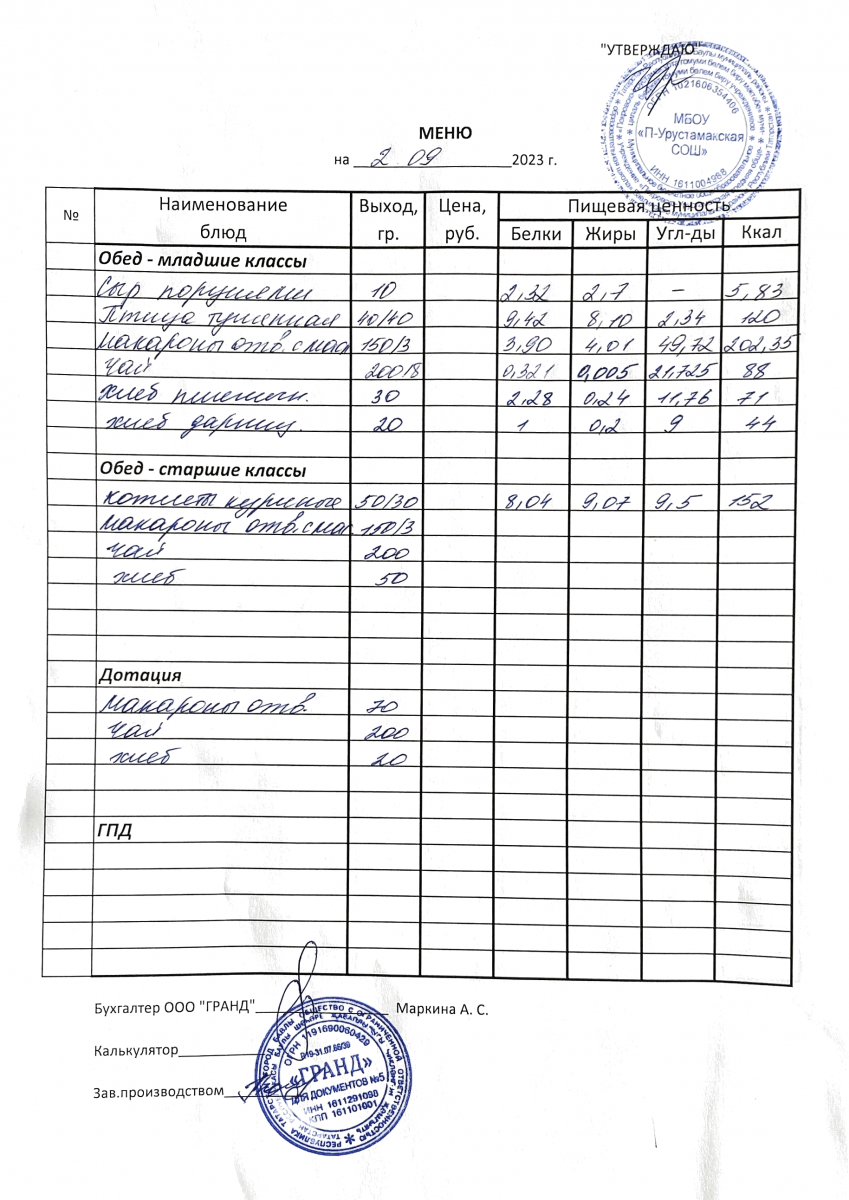 "УТВЕРЖДАЮ"
ОГРН 1021606354406
МБОУ
«П-Урустамакская
СОШ»
ИНН 1611004988
МЕНЮ
на 2 09 2023 г.
№ Наименование блюд Выход, гр. Цена, руб. Пищевая ценность
Белки Жиры Угл-ды Ккал
Обед - младшие классы
Сыр порциями 10 2,32 2,7 – 5,83
Птица тушенная 40/40 9,42 8,10 2,34 120
макароны отв. с мас 150/3 3,90 4,01 49,72 202,35
чай 200/8 0,321 0,005 21,725 88
хлеб пшеничн. 30 2,28 0,24 11,76 71
хлеб дарниц. 20 1 0,2 9 44
Обед - старшие классы
котлеты куриные 50/30 8,04 9,07 9,5 152
макароны отв. с мас 150/3
чай 200
хлеб 50
Дотация
макароны отв. 70
чай 200
хлеб 20
ГПД
Бухгалтер ООО "ГРАНД" Маркина А. С.
Калькулятор
Зав.производством
ОГРН 1191690060429
«ГРАНД»
ДЛЯ ДОКУМЕНТОВ №5
ИНН 1611291098
КПП 161101001